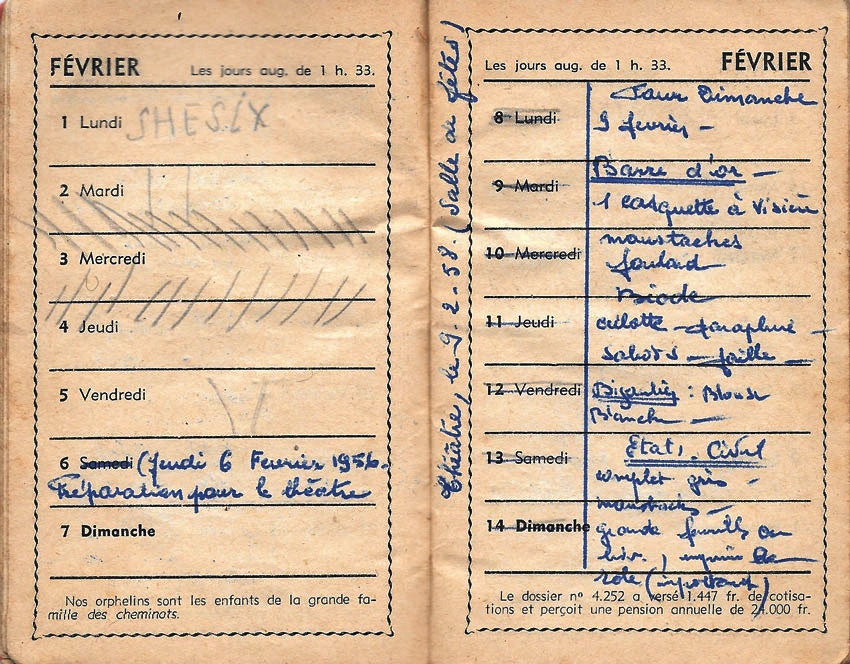 FÉVRIER Les jours aug. de 1 h. 33.
1 Lundi SHESIX
2 Mardi
3 Mercredi
4 Jeudi
5 Vendredi
6 Samedi (Jeudi 6 Fevrier 1956.
Préparation pour le théâtre
7 Dimanche
Nos orphelins sont les enfants de la grande fa-
mille des cheminots.
Théâtre, le 9-2-58. (Salle de fêtes)
Les jours aug. de 1 h. 33. FÉVRIER
Pour Dimanche
8 Lundi 9 fevrier -
Barre d'or -
9 Mardi
1 casquette à visière
moustaches
10 Mercredi foulard
11 Jeudi culotte -
sabots -
12 Vendredi : Blouse
Blanche -
Etat. Civil
13 Samedi
complet gris -
moustaches -
14 Dimanche grande
role (important)
Le dossier nº 4.252 a versé 1.447 fr. de cotisa-
tions et perçoit une pension annuelle de 24.000 fr.